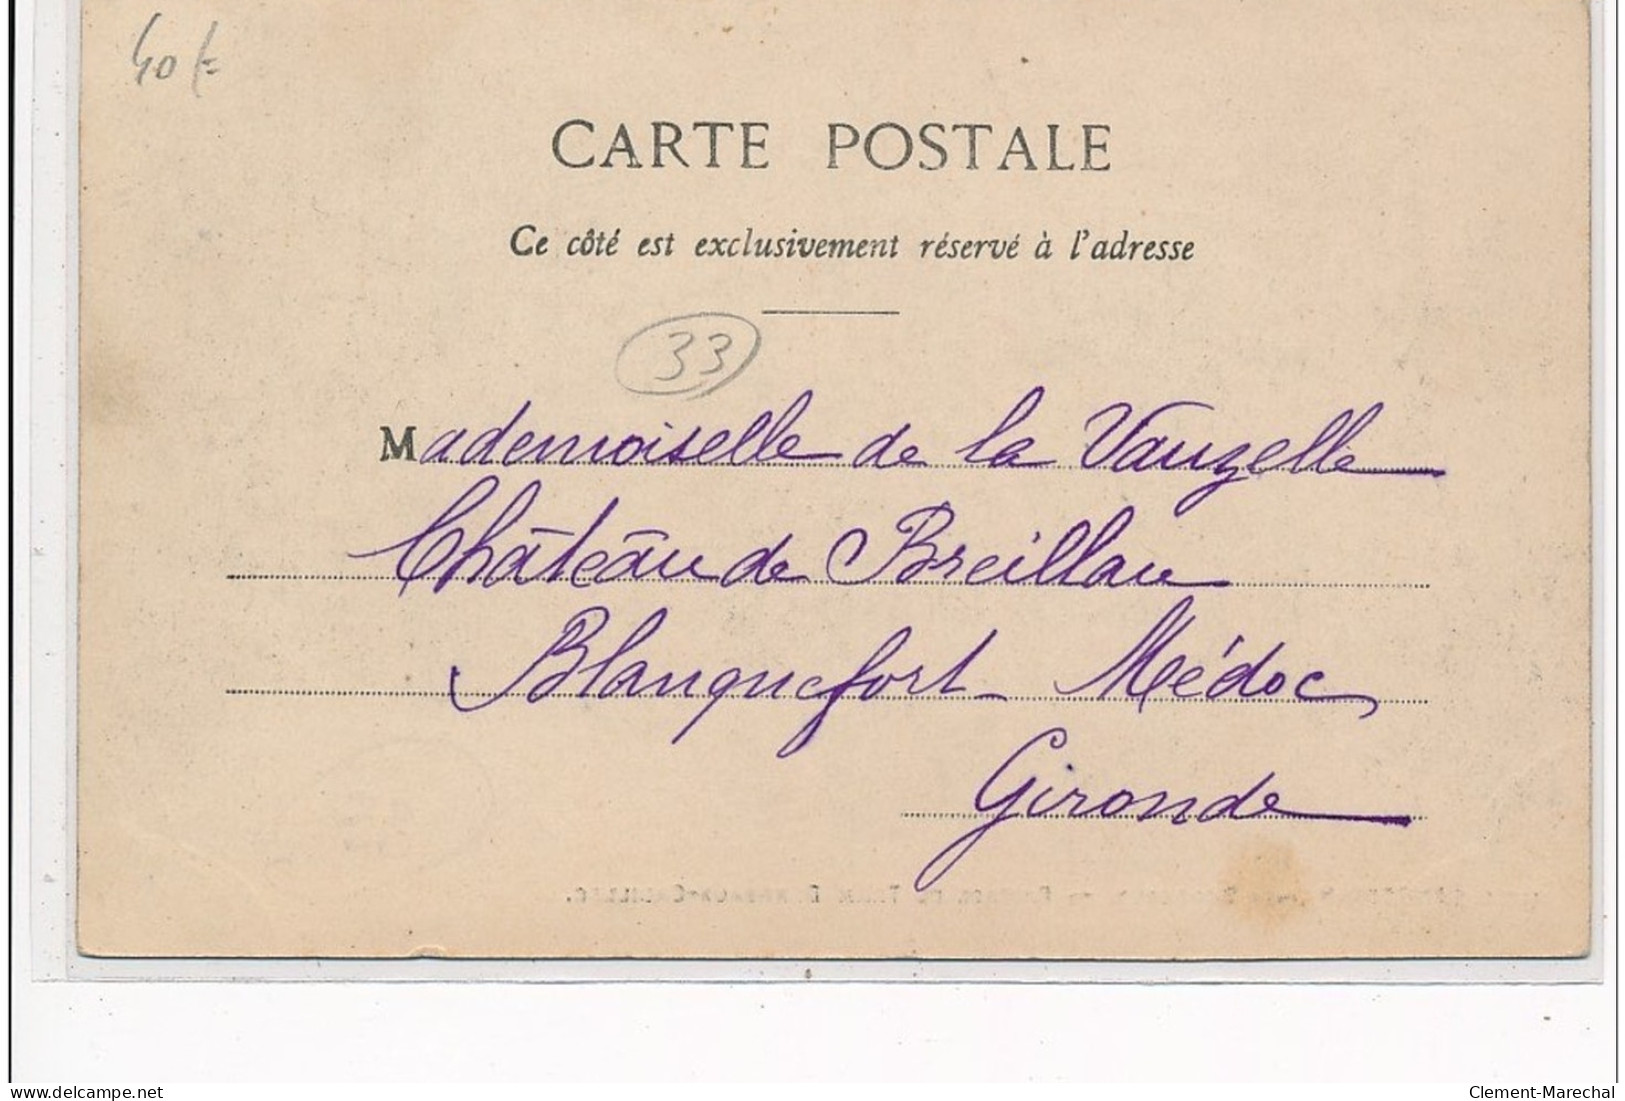 40 €
CARTE POSTALE
Ce côté est exclusivement réservé à l'adresse
33
Mademoiselle de la Vauzelle
Château de Breillau
Blanquefort Médoc
Gironde
www.delcampe.net
Clement-Marechal